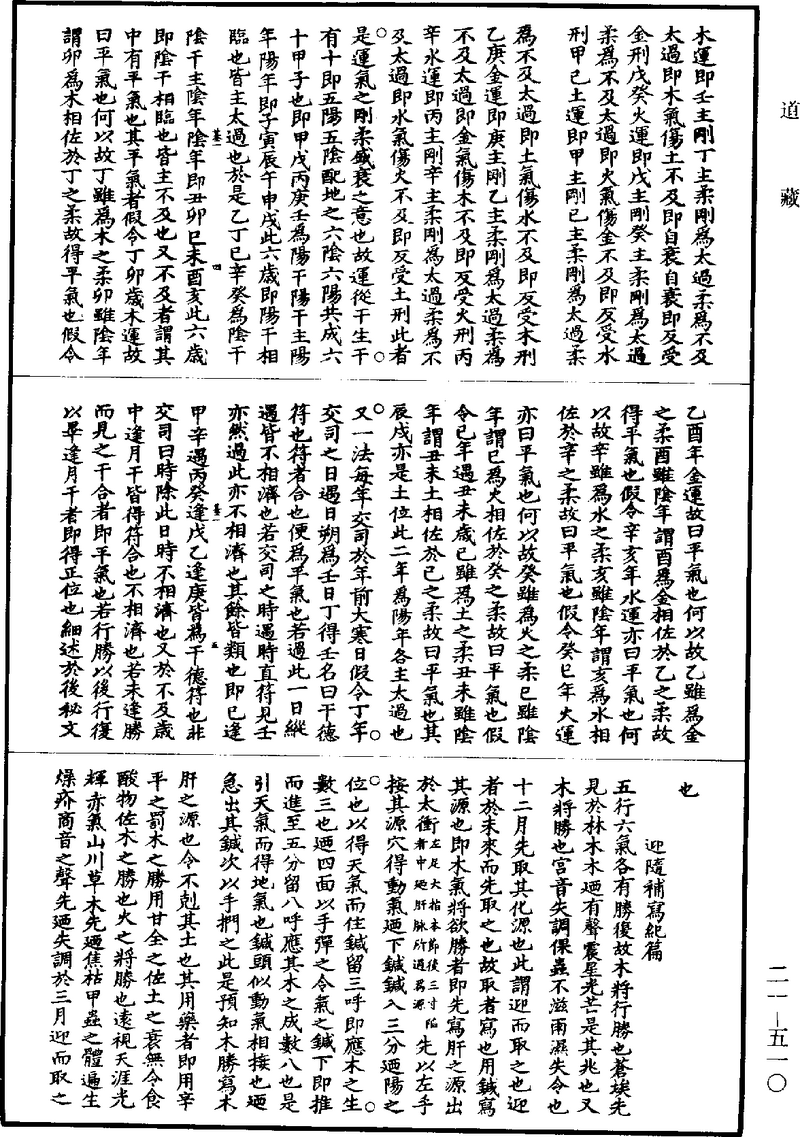 道藏
木運即壬主剛丁主柔剛為太過柔為不及
太過即木氣傷土不及即自衰自衰即反受
金刑戊癸火運即戊主剛癸主柔剛為太過
柔為不及太過即火氣傷金不及即反受水
刑甲己土運即甲主剛己主柔剛為太過柔
為不及太過即土氣傷水不及即反受木刑
乙庚金運即庚主剛乙主柔剛為太過柔為
不及太過即金氣傷木不及即反受火刑丙
辛水運即丙主剛辛主柔剛為太過柔為不
及太過即水氣傷火不及即反受土刑此者
是運氣之剛柔盛衰之意也故運從干生干
有十即五陽五陰配地之六陰六陽共成六
十甲子也即甲戊丙庚壬為陽干陽干主陽
年陽年即子寅辰午申戌此六歲即陽干相
臨也皆主太過也於是乙丁己辛癸為陰干
陰干主陰年陰年即丑卯巳未酉亥此六歲
即陰干相臨也皆主不及也又不及者謂其
中有平氣也其平氣者假令丁卯歲木運故
曰平氣也何以故丁雖為木之柔卯雖陰年
謂卯為木相佐於丁之柔故得平氣也假令
乙酉年金運故曰平氣也何以故乙雖為金
之柔酉雖陰年謂酉為金相佐於乙之柔故
得平氣也假令辛亥年水運亦曰平氣也何
以故辛雖為水之柔亥雖陰年謂亥為水相
佐於辛之柔故曰平氣也假令癸巳年火運
亦曰平氣也何以故癸雖為火之柔巳雖陰
年謂巳為火相佐於癸之柔故曰平氣也假
令己年遇丑未歲己雖為土之柔丑未雖陰
年謂丑未土相佐於己之柔故曰平氣也其
辰戌亦是土位此二年為陽年各主太過也
又一法每年交司於年前大寒日假令丁年
交司之日遇日朔為壬日丁得壬名曰干德
符也符者合也便為平氣也若過此一日縱
遇皆不相濟也若交司之時遇時直符見壬
亦然過此亦不相濟也其餘皆類也即己逢
甲辛遇丙癸逢戊乙逢庚皆為干德符也非
交司日時除此日時不相濟也又於不及歲
中逢月干皆得符合也不相濟也若未逢勝
而見之干合者即平氣也若行勝以後行復
以畢逢月干者即得正位也細述於後秘文
也
迎隨補寫紀篇
五行六氣各有勝復故木將行勝也蒼埃先
見於林木木迺有聲震星光芒是其兆也又
木將勝也宮音失調倮蟲不滋雨濕失令也
十二月先取其化源也此謂迎而取之也迎
者於未來而先取之也故取者寫也用鍼寫
其源也即木氣將欲勝者即先寫肝之源出
於太衝左足大指本節後三寸陷者中迺肝脉所過為源先以左手
按其源穴得動氣迺下鍼鍼入三分迺陽之
位也以得天氣而住鍼留三呼即應木之生
數三也迺四面以手彈之令氣之鍼下即推
而進至五分留八呼應其木之成數八也是
引天氣而得地氣也鍼頭似動氣相接也迺
急出其鍼次以手捫之此是預知木勝寫木
肝之源也令不剋其土也其用藥者即用辛
平之罰木之勝用甘全之佐土之衰無令食
酸物佐木之勝也火之將勝也遠視天涯光
輝赤氣山川草木先迺焦枯甲蟲之體遍生
燥疥商音之聲先迺失調於三月迎而取之
二一—五一〇